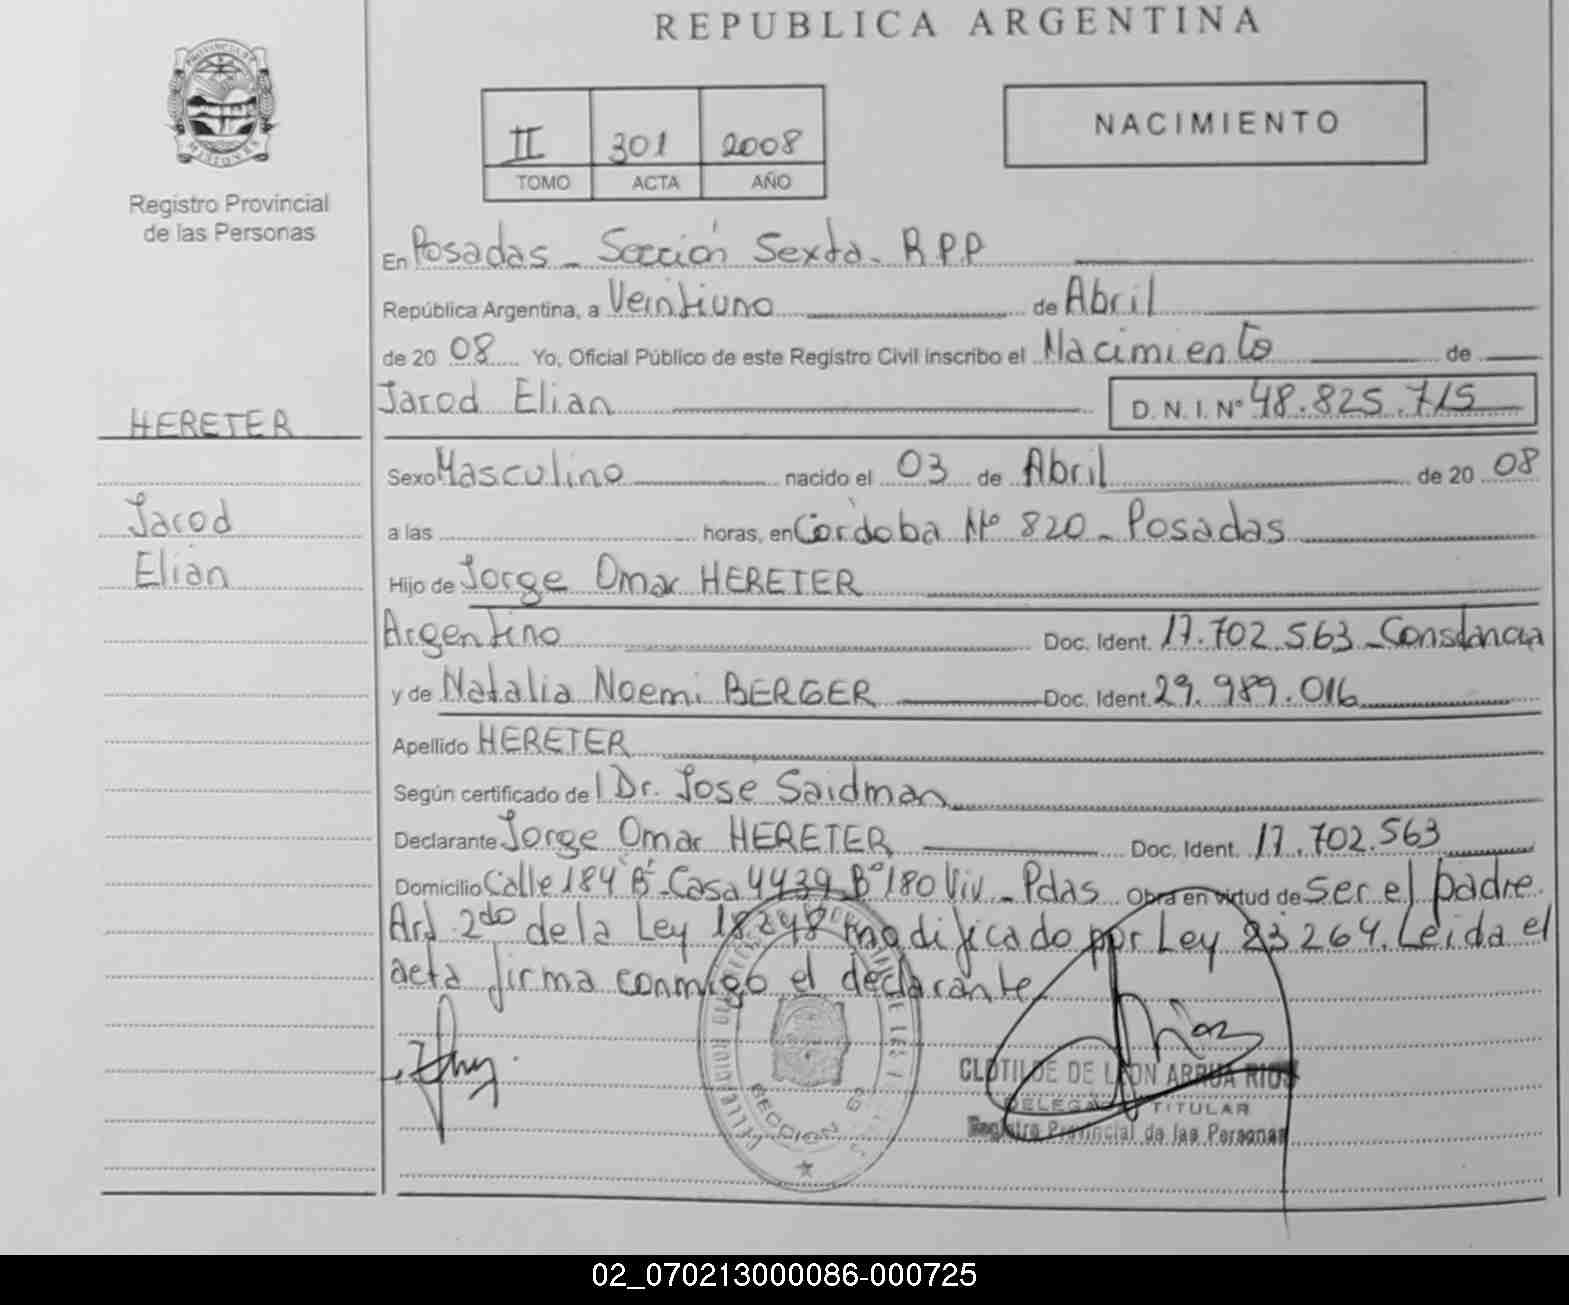 REPUBLICA ARGENTINA
PROVINCIA DE MISIONES
Registro Provincial
de las Personas
II 301 2008
TOMO ACTA AÑO
NACIMIENTO
En Posadas - Sección Sexta - R P P
República Argentina, a Veintiuno de Abril
de 20 08 Yo, Oficial Público de este Registro Civil inscribo el Nacimiento de
Jarod Elian D. N. I. Nº 48.825.715
HERETER
Jarod
Elian
Sexo Masculino nacido el 03 de Abril de 20 08
a las horas, en Córdoba Nº 820 - Posadas
Hijo de Jorge Omar HERETER
Argentino Doc. Ident. 17.702.563 - Constancia
y de Natalia Noemi BERGER Doc. Ident. 29.989.016
Apellido HERETER
Según certificado del Dr. José Saidman
Declarante Jorge Omar HERETER Doc. Ident. 17.702.563
Domicilio Calle 184 "B" - Casa 4439 Bº 180 Viv - Pdas Obra en virtud de Ser el padre.
Art 2do de la Ley 18.248 modificado por Ley 23264. Leida el
acta firma conmigo el declarante
SECCION 6ª
CLOTILDE DE LEON ARRUA RIOS
DELEGADA TITULAR
Registro Provincial de las Personas
02_070213000086-000725